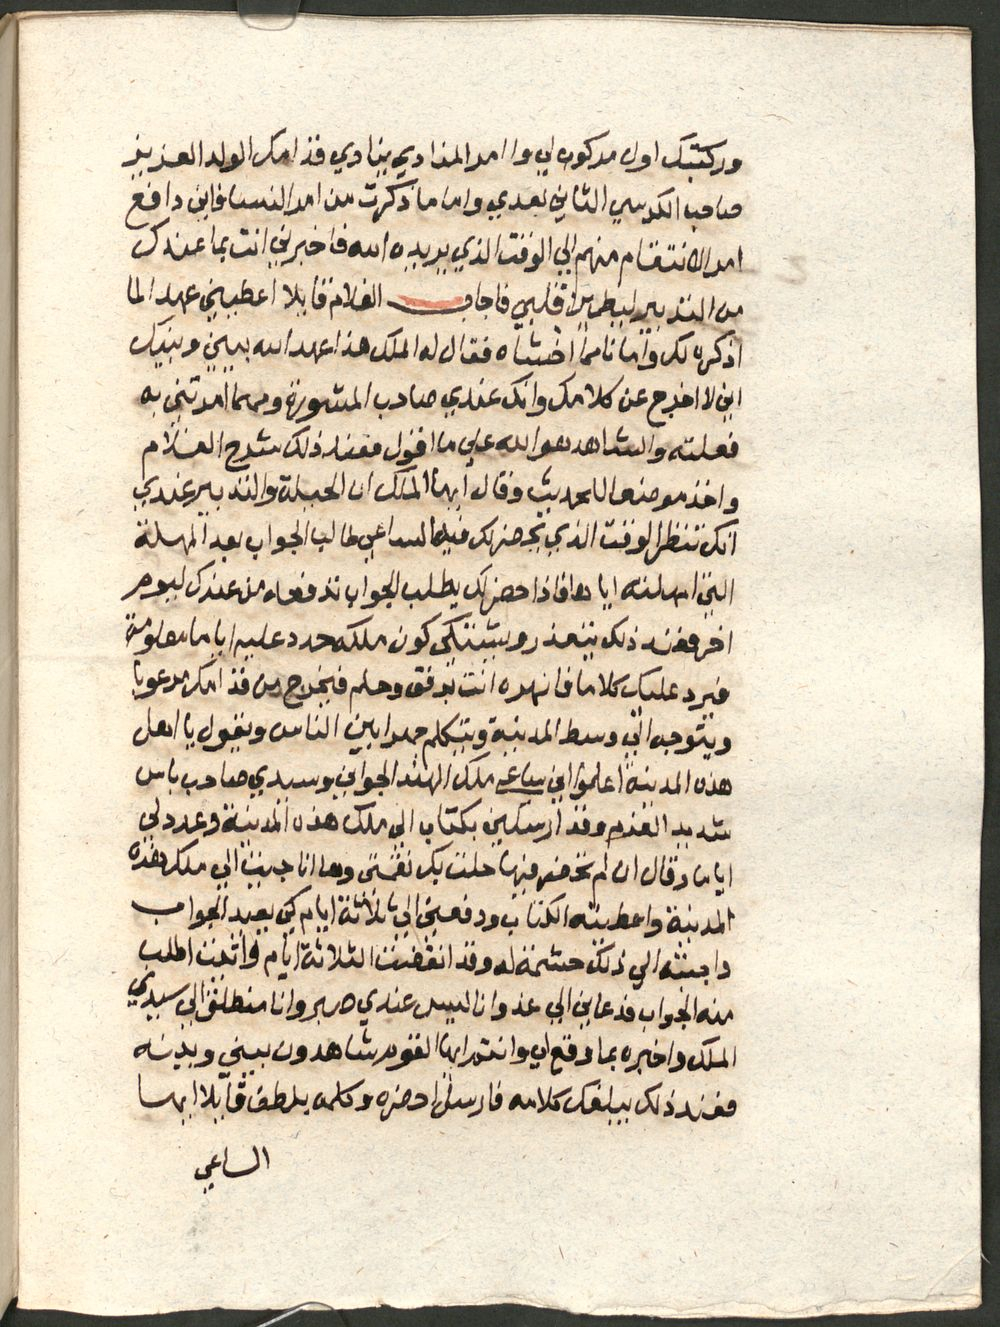 وركبتك اول مركوب لي واامر المنادي ينادي قدامك الولد العزيز
صاحب الكرسي الثاني بعدي واما ما ذكرت من امر النسا فاني دافع
امر الانتقام منهم الي الوقت الذي يريده الله فاخبرني انت بما عندك
من التدبير ليطمين قلبي فاجاب الغلام قايلا اعطيني عهد الما
اذكره لك وامانا مما اخشاه فقال له الملك هذا عهد الله بيني وبينك
اني لا اخرج عن كلامك وانك عندي صاحب المشورة ومهما امرتني به
فعلته والشاهد هو الله علي ما اقول فعند ذلك شرح الغلام
واخذ موضعا للحديث وقال ايها الملك ان الحيلة والتدبير عندي
انك تنظر الوقت الذي يحضر لك فيه الساعي طالب الجواب بعد المهلة
التي امهلته اياها فاذا حضر لك يطلب الجواب تدفعه من عندك ليوم
اخر فعند ذلك يتعذر ويشتكي كون ملكه حدد عليه اياما معلومة
فيرد عليك كلاما فانهره انت برفق وحلم فيخرج من قدامك مرعوبا
ويتوجه الي وسط المدينة ويتكلم جهرا بين الناس ويقول يا اهل
هذه المدينة اعلموا اني ساعي ملك الهند الجواني وسيدي صاحب باس
شديد العزم وقد ارسلني بكتاب الي ملك هذه المدينة وعدد لي
اياما وقال ان لم تحضر فيها حلت بك نقمتي وها انا جيت الي ملك هذه
المدينة واعطيته الكتاب ودفعني الي ثلاثة ايام كي يعيد الجواب
واجبته الي ذلك حشمة له وقد انقضت الثلاثة ايام واتيت اطلب
منه الجواب فدعاني الي غد وانا ليس عندي صبر وانا منطلق الي سيدي
الملك واخبره بما وقع لي وانتم ايها القوم شاهدون بيني وبينه
فعند ذلك يبلغك كلامه فارسل احضره وكلمه بلطف قايلا ايها
الساعي